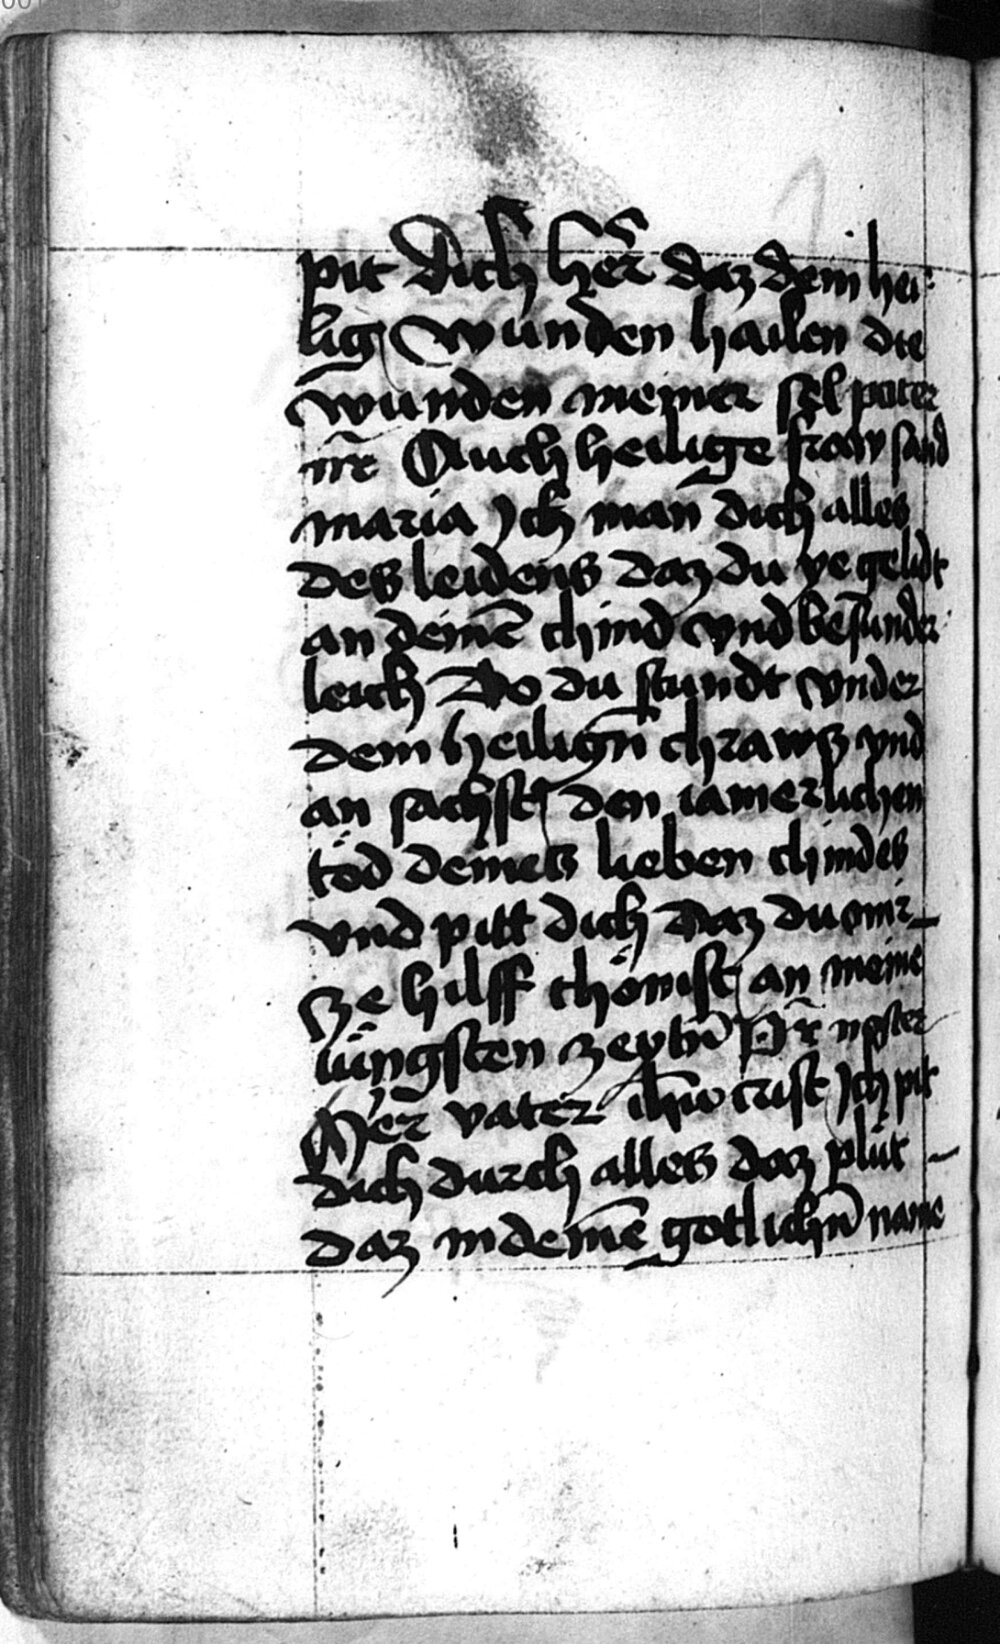 pit dich her̄ daz dein hei-
lig wunden hailen die
wunden meiner sel pater
nr̄ Auch heilige fraw sand
maria Ich man̄ dich alles
des leidens daz du ye gelidt
an deinē chind vnd besunder
leich Do du stundt vnder
dem heilign̄ chrawtz vnd
an sachst den iamerlichen
töd deines lieben chindes
vnd pitt dich Daz du mir
ze hilff chömst an meinē
iüngsten zeytn̄ Pr̄ noster
Her̄ vater ihū crist Ich pit
dich durch alles daz plüt
daz in deinē gotlichn̄ name